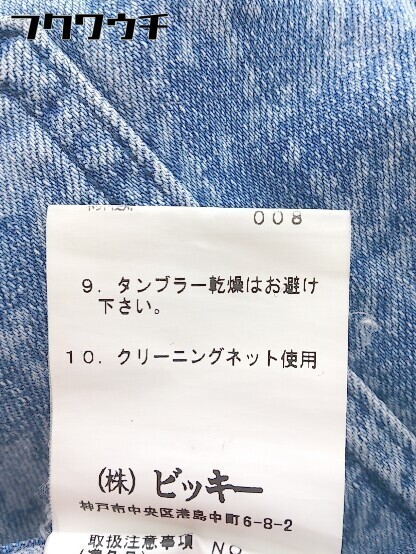 フクワウチ
008
9. タンブラー乾燥はお避け
下さい。
10. クリーニングネット使用
(株) ビッキー
神戸市中央区港島中町6-8-2
取扱注意事項 NO